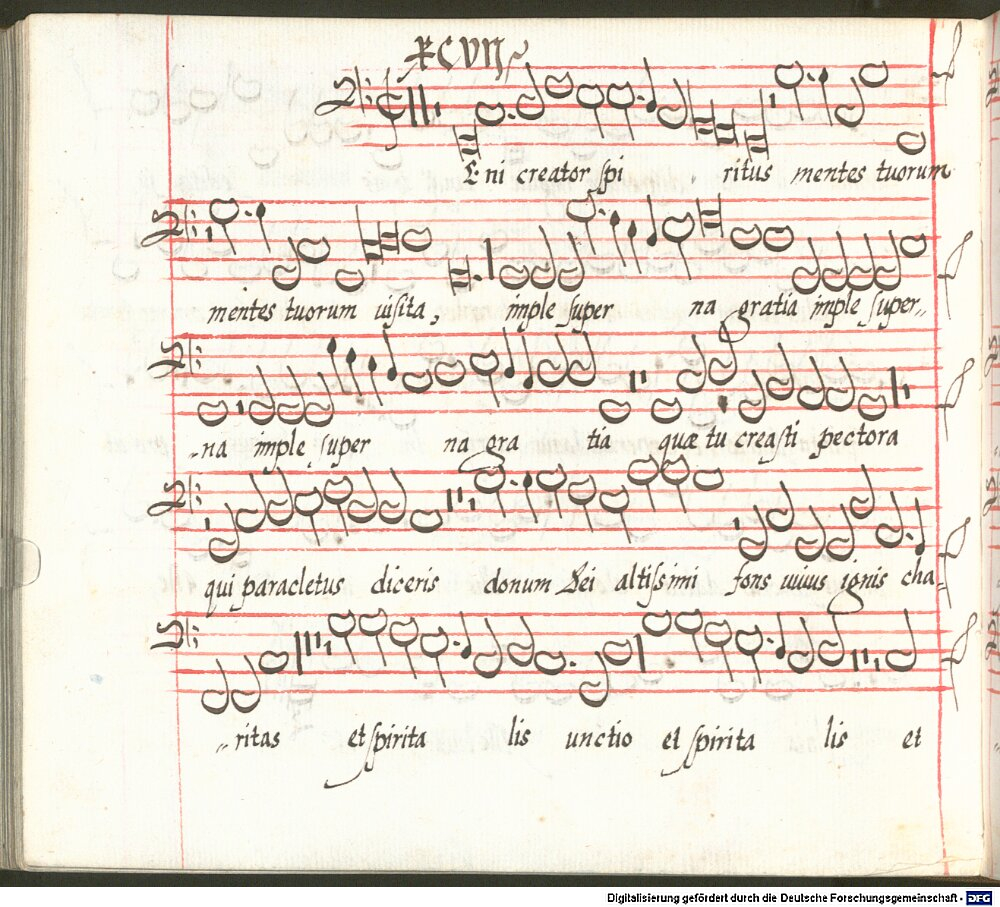 XCVII
Veni creator spi ritus mentes tuorum
mentes tuorum uisita, imple super na gratia imple super-
-na imple super na gra tia quæ tu creasti pectora
qui paracletus diceris donum Dei altissimi fons uiuus ignis cha-
-ritas et spirita lis unctio et spirita lis et
Digitalisierung gefördert durch die Deutsche Forschungsgemeinschaft - DFG